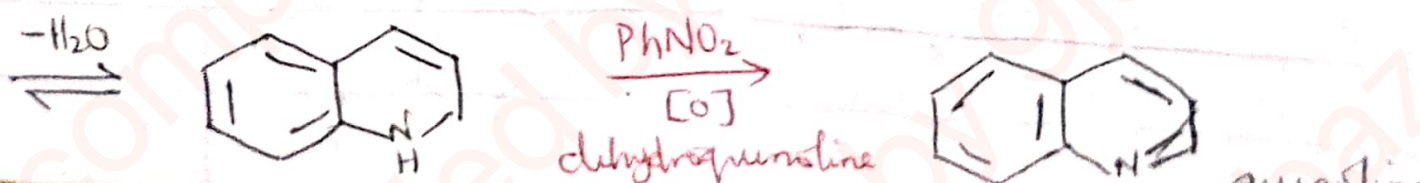 -H2O
PhNO2
[O]
dihydroquinoline
N
H
N